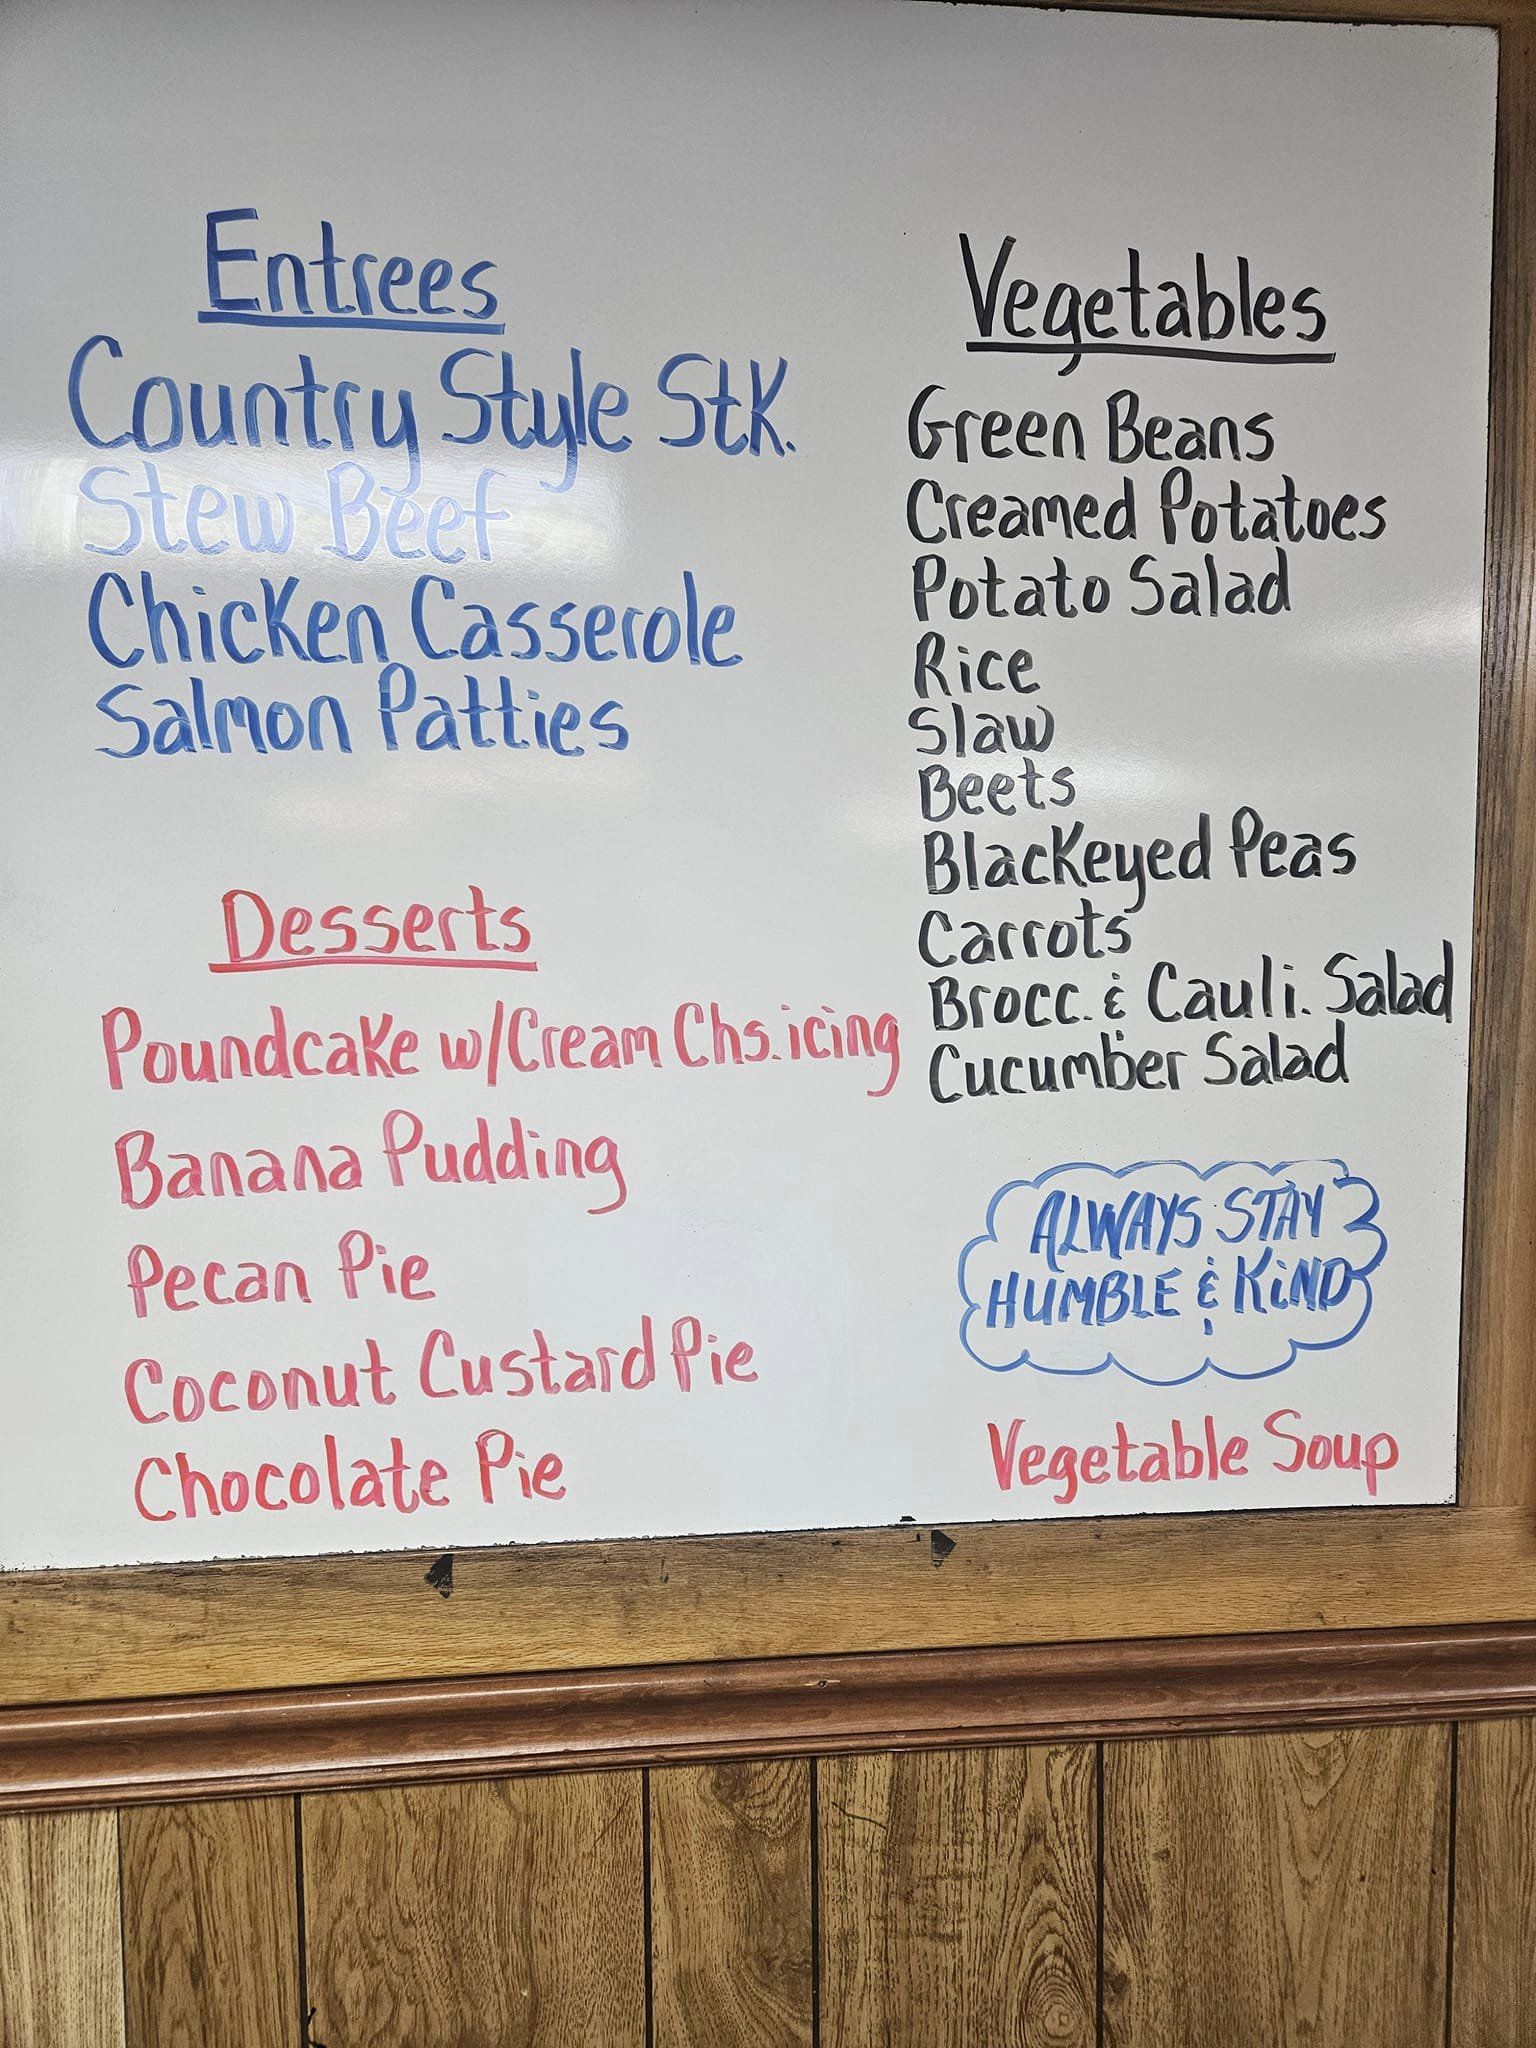 Entrees
Country Style Stk.
Stew Beef
Chicken Casserole
Salmon Patties
Desserts
Poundcake w/Cream Chs. icing
Banana Pudding
Pecan Pie
Coconut Custard Pie
Chocolate Pie
Vegetables
Green Beans
Creamed Potatoes
Potato Salad
Rice
Slaw
Beets
Blackeyed Peas
Carrots
Brocc. & Cauli. Salad
Cucumber Salad
ALWAYS STAY
HUMBLE & KiND
Vegetable Soup